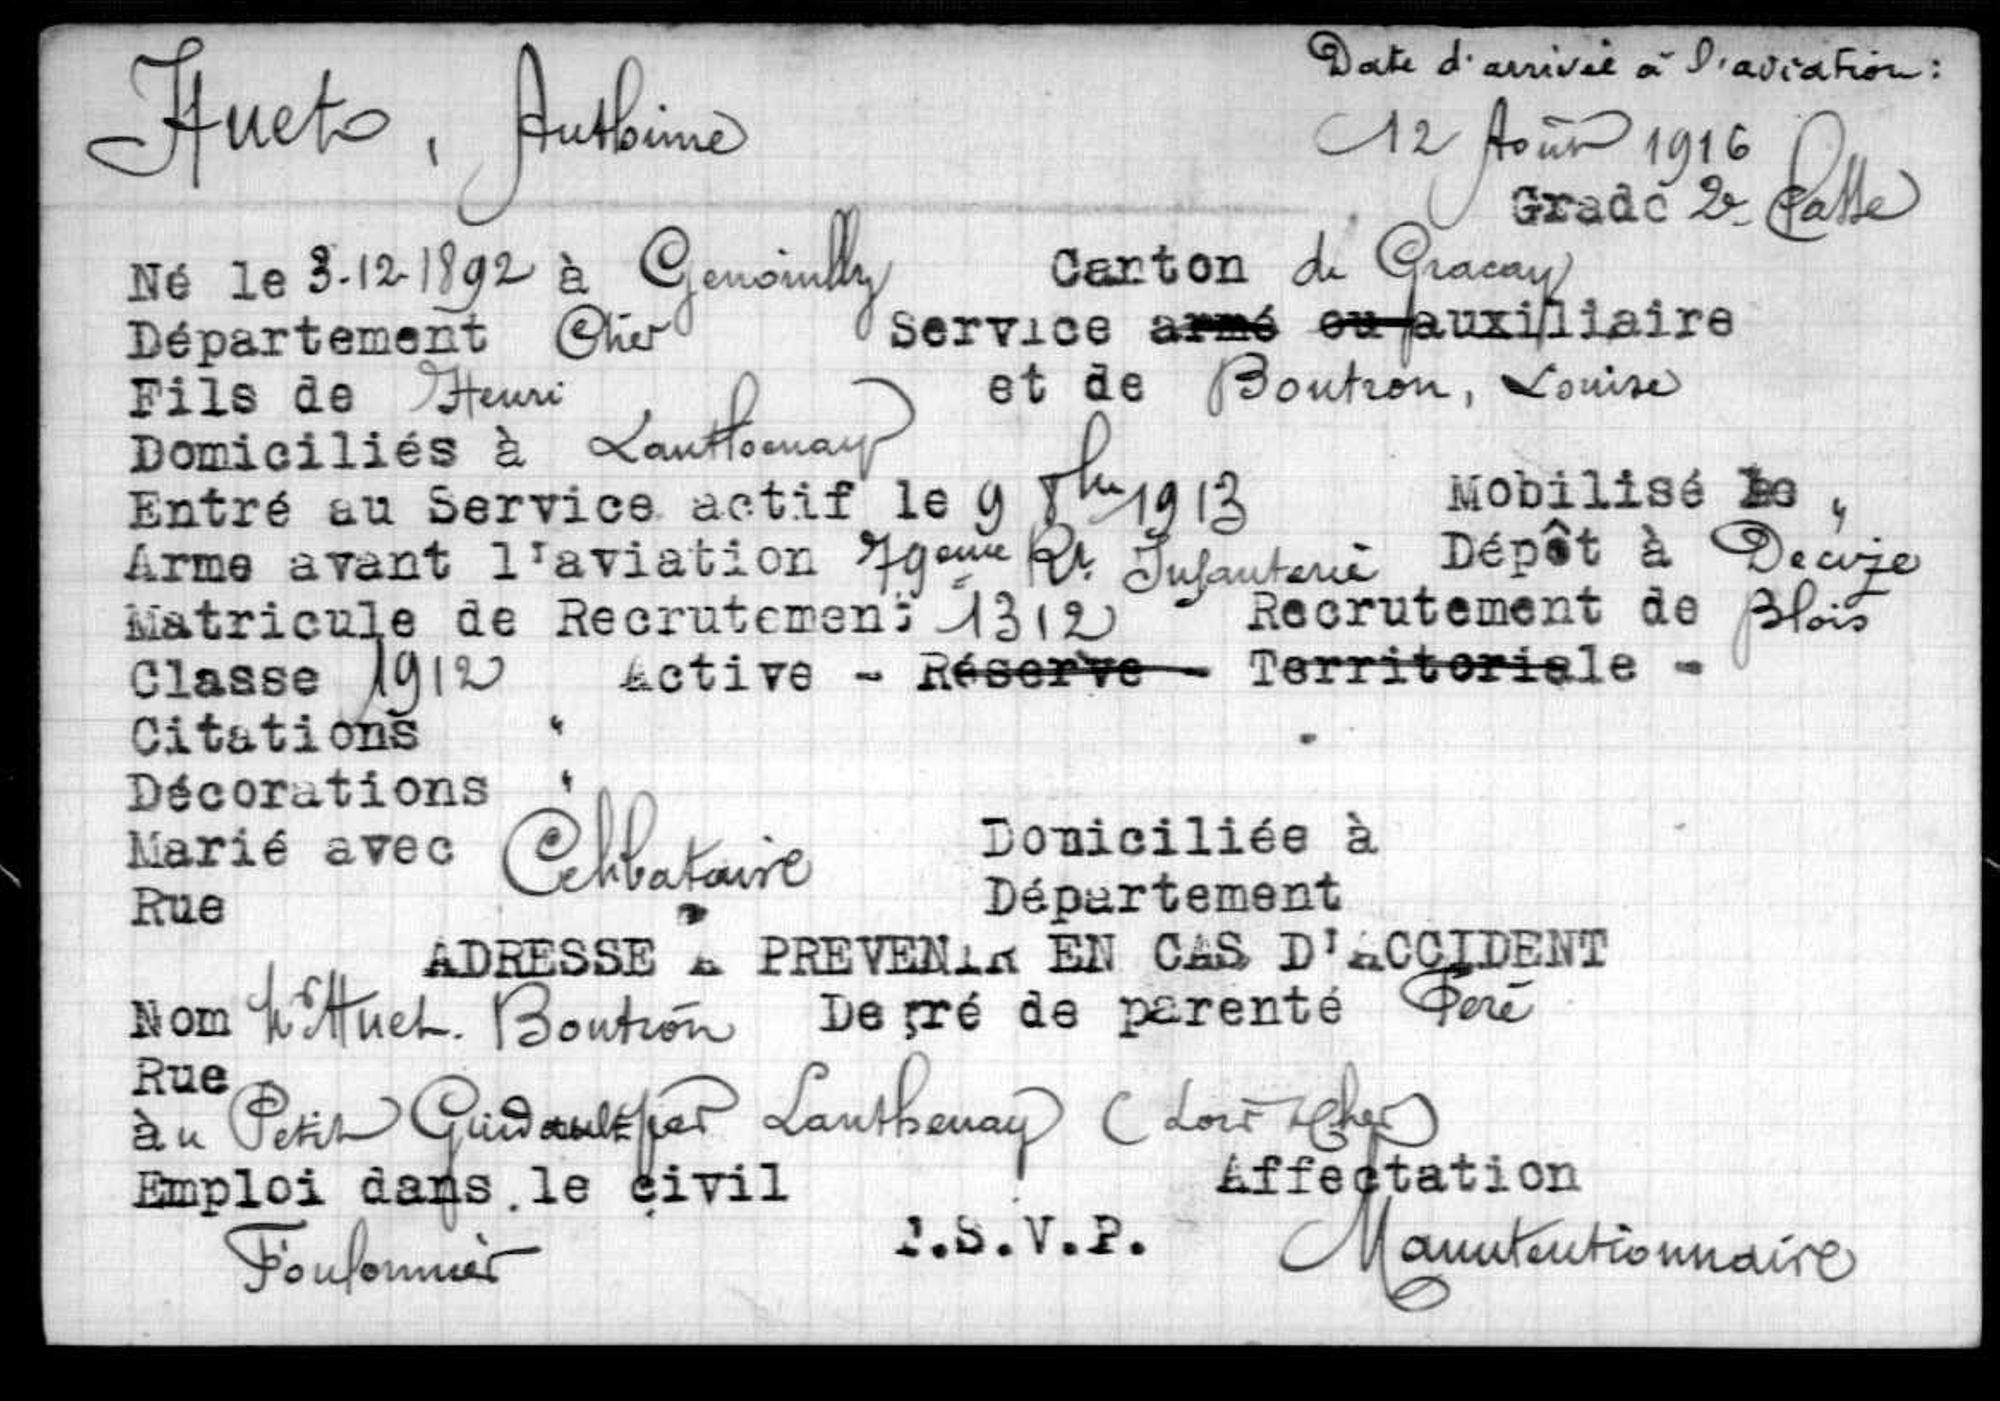 Date d'arrivée à l'aviation :
Huet, Anthime
12 Août 1916
Grade 2e Classe
Né le 3-12-1892 à Genouilly Canton de Gracay
Département Cher Service armé ou auxiliaire
Fils de Henri et de Boutron, Louise
Domiciliés à Lanthenay
Entré au Service actif le 9 8bre 1913 Mobilisé le "
Arme avant l'aviation 79eme Rt. Infanterie Dépôt à Decize
Matricule de Recrutement 1312 Recrutement de Blois
Classe 1912 Active - Réserve - Territoriale -
Citations "
Décorations "
Marié avec Celibataire Domiciliée à
Rue Département
ADRESSE A PREVENIR EN CAS D'ACCIDENT
Nom Mr Huet. Boutron Degré de parenté Père
Rue
àu Petit Guidault par Lanthenay (Loir & Cher)
Emploi dans le civil Affectation
Foulonnier T.S.V.P. Manutentionnaire